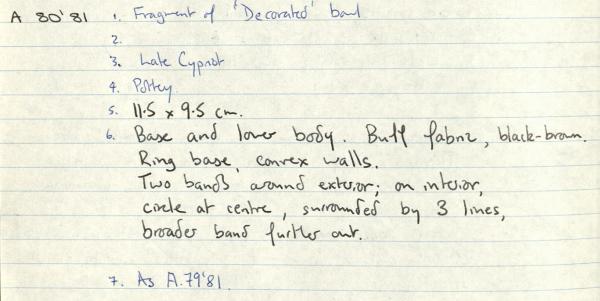 A 80'81 1. Fragment of 'Decorated' bowl
2.
3. Late Cypriot
4. Pottery
5. 11.5 x 9.5 cm.
6. Base and lower body. Buff fabric, black-brown.
Ring base, convex walls.
Two bands around exterior; on interior,
circle at centre, surrounded by 3 lines,
broader band further out.
7. As A.79'81.